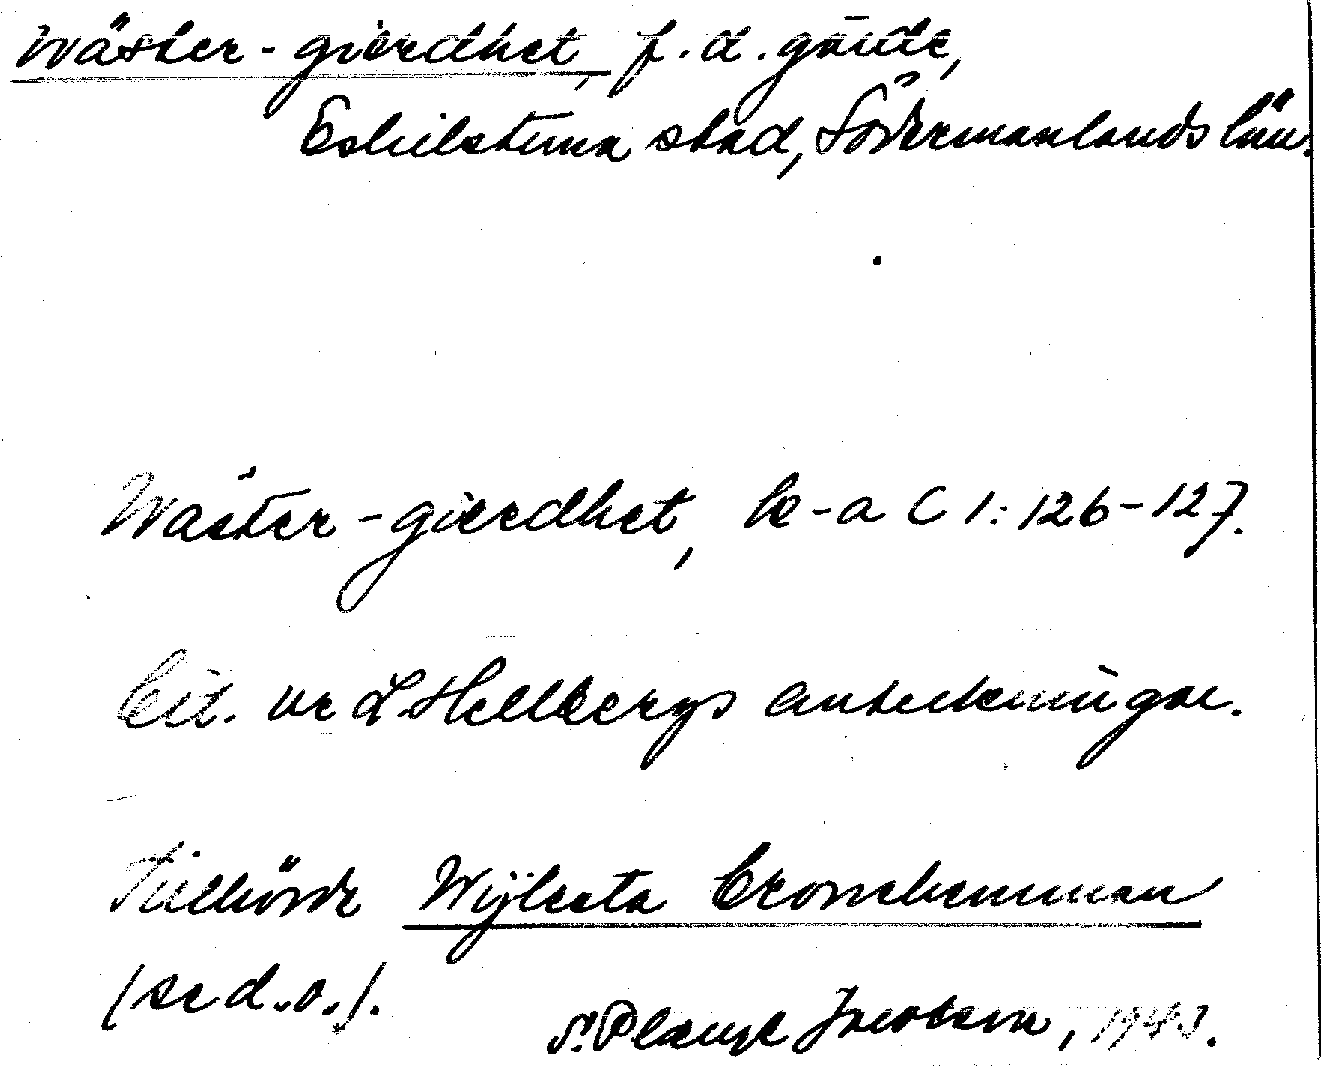 Wäster-gierdhet, f.d. gärde,
Eskilstuna stad, Södermanlands län.
Wäster-gierdhet, le-a C 1:126-127.
Cit. ur L. Hellbergs anteckningar.
Tillhörde Wÿlsta Cronehemman
(se d.o.).
S. Plænge Jacobson, 1943.